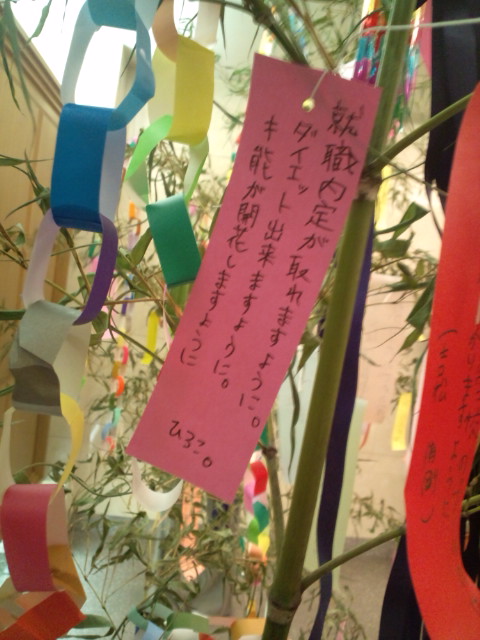 就職内定が取れますように。
ダイエット出来ますように。
才能が開花しますように
ひろこ。